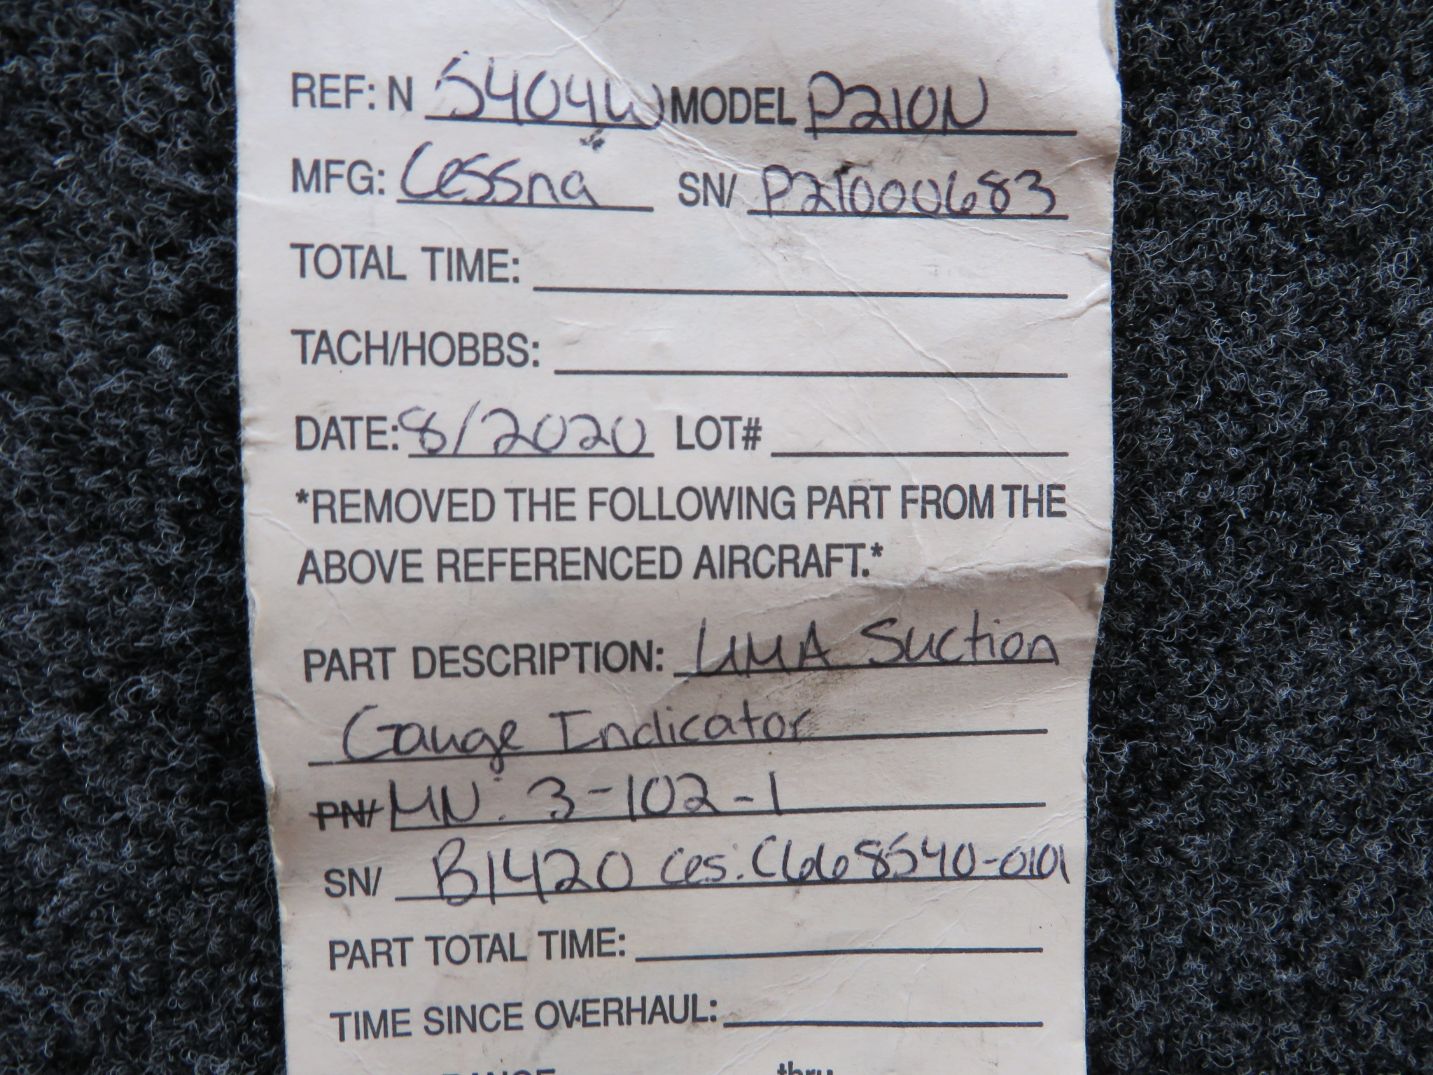 REF: N 5404W MODEL P210N
MFG: Cessna SN/ P21000683
TOTAL TIME:
TACH/HOBBS:
DATE: 8/2020 LOT#
*REMOVED THE FOLLOWING PART FROM THE
ABOVE REFERENCED AIRCRAFT.*
PART DESCRIPTION: UMA Suction
Gauge Indicator
PN/ MN: 3-102-1
SN/ B1420 Ces: C668540-0101
PART TOTAL TIME:
TIME SINCE OVERHAUL:
thru